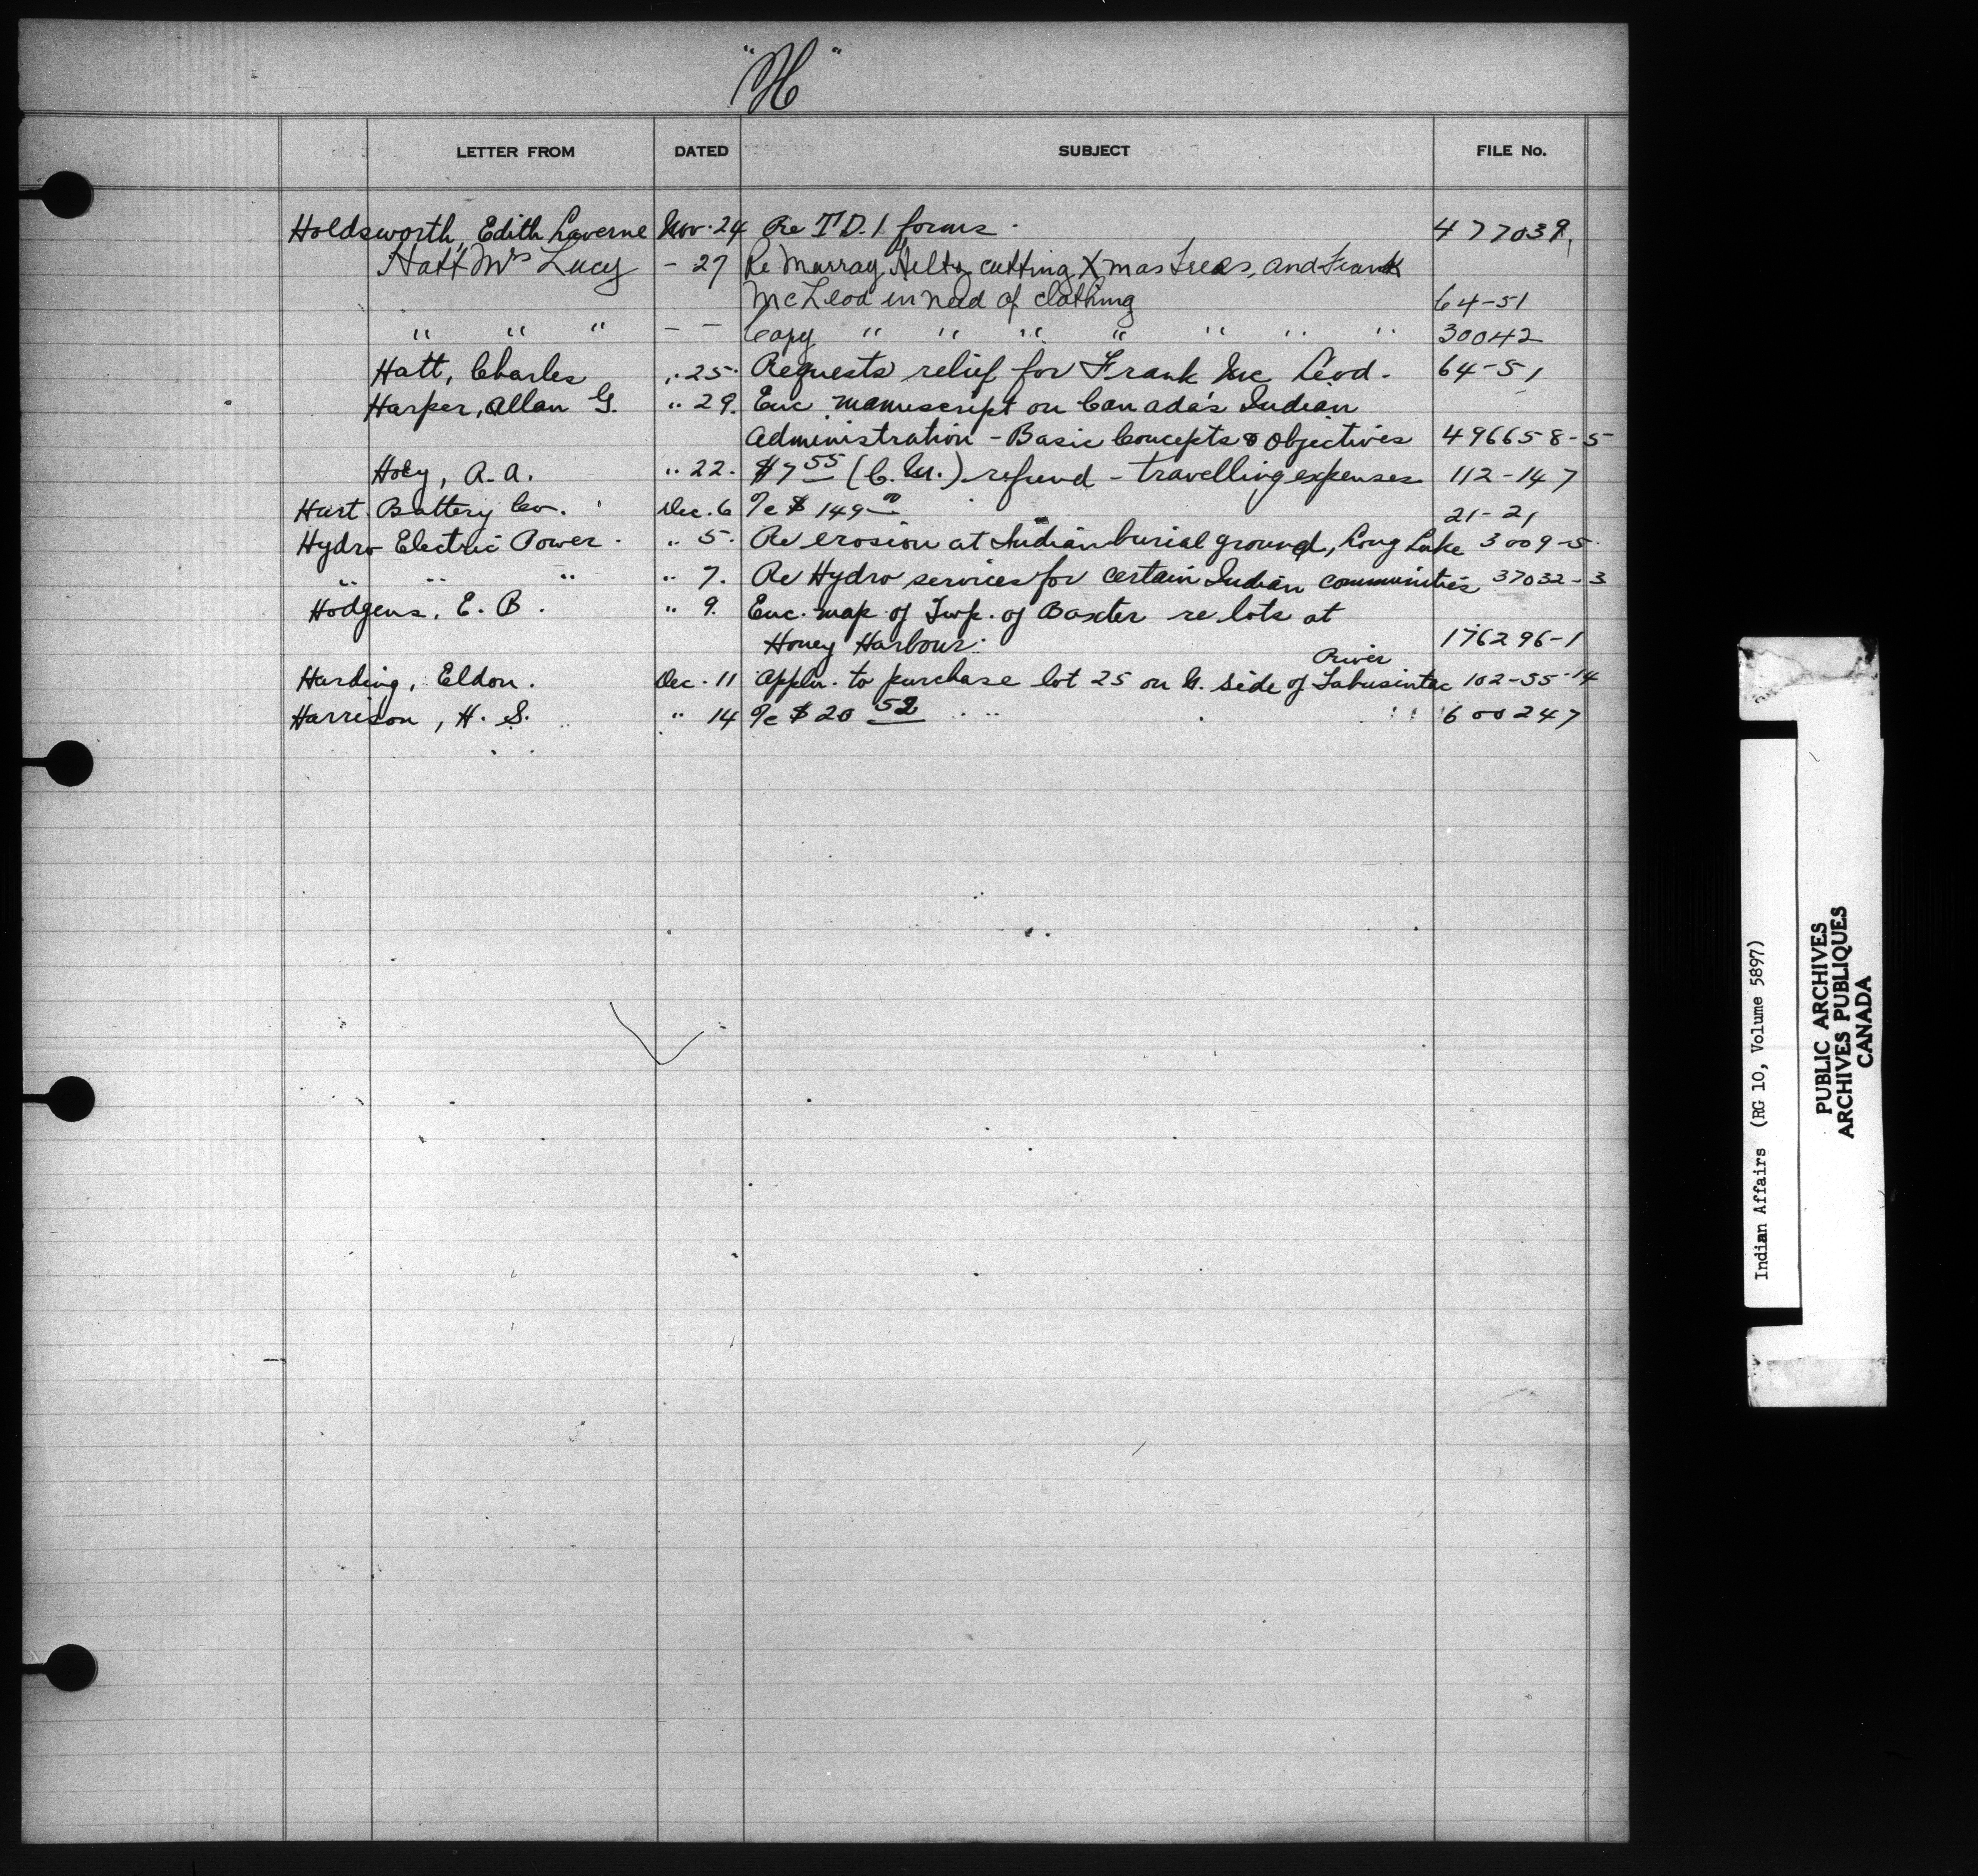 "H"
LETTER FROM DATED SUBJECT FILE No.
Holdsworth, Edith Laverne Nov. 24 Re T.D.1 forms. 477039
Hatt Mrs Lucy - 27 Re Murray cutting Xmas Trees, and Frank
McLeod in need of clothing 64-51
" " " - - Copy " " " " " " " 30042
Hatt, Charles " 25. Requests relief for Frank Mc Leod. 64-51
Harper, Allan G. " 29. Enc manuscript on Canada's Indian
Administration - Basic Concepts & Objectives 496658-5
Hoey, R.A. " 22. $7 55 (C.M.) refund - travelling expenses 112-147
Hart Battery Co. Dec. 6 %c $149 00 21-21
Hydro Electric Power. " 5. Re erosion at Indian burial ground, Long Lake 3009-5
" " " " 7. Re Hydro services for certain Indian communities 37032-3
Hodgens, E. B. " 9. Enc. map of Twp. of Baxter re lots at
Honey Harbour. 176296-1
River
Harding, Eldon. Dec. 11 Appln. to purchase lot 25 on N. side of Tabusintac 102-55-14
Harrison, H. S. " 14 %c $20 52 600247
Indian Affairs (RG 10, Volume 5897)
PUBLIC ARCHIVES
ARCHIVES PUBLIQUES
CANADA